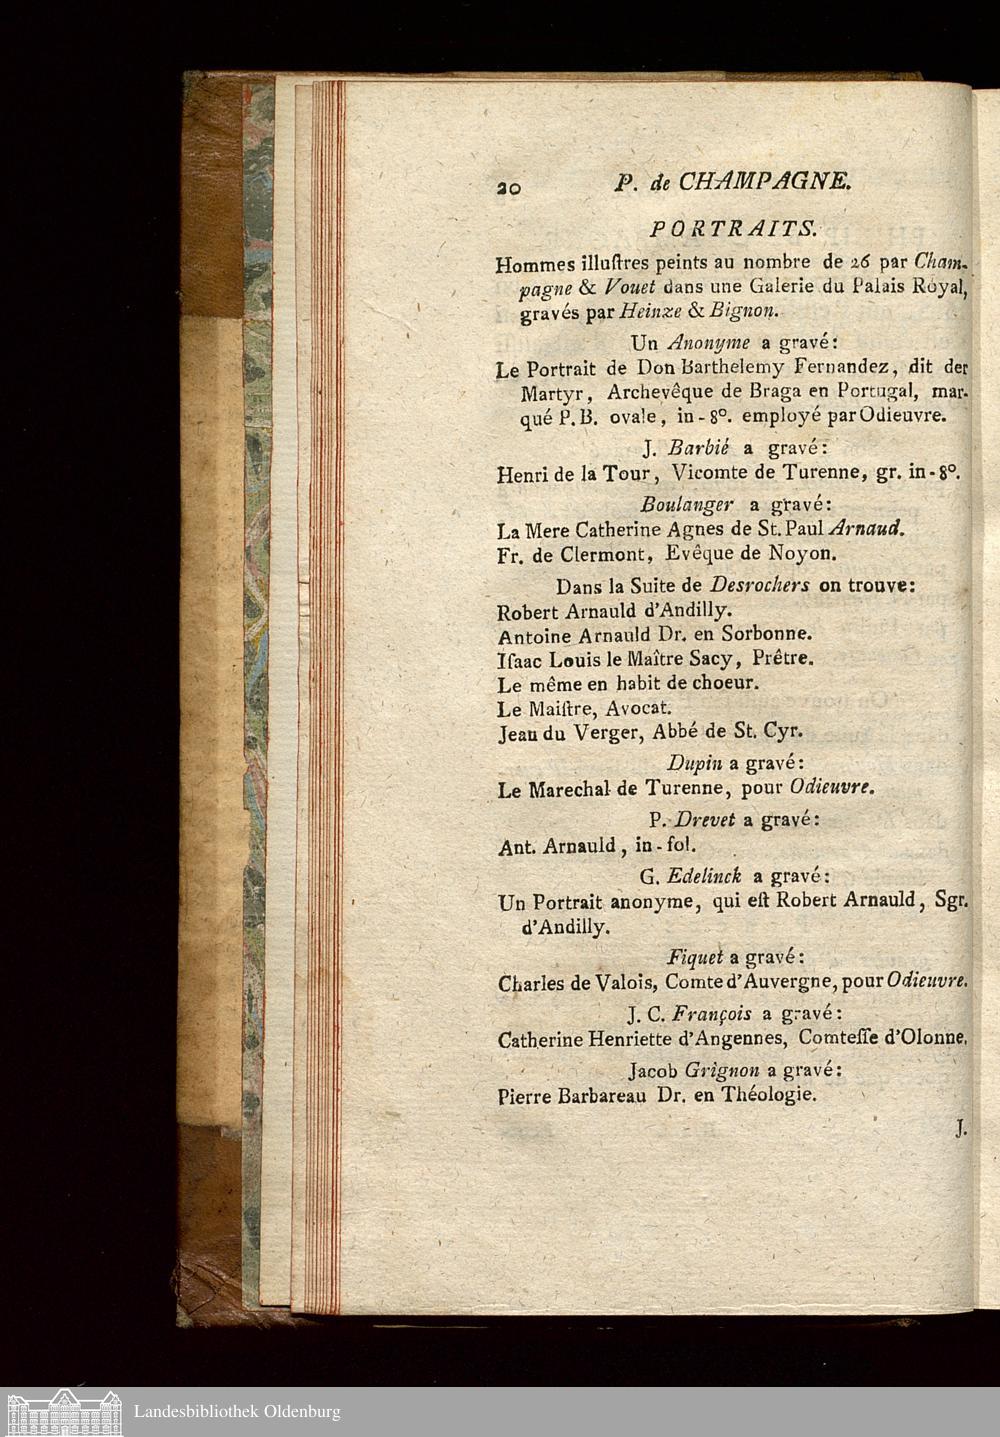 20 P. de CHAMPAGNE.
PORTRAITS.
Hommes illuſtres peints au nombre de 26 par Cham-
pagne & Vouet dans une Galerie du Palais Royal,
gravés par Heinze & Bignon.
Un Anonyme a gravé:
Le Portrait de Don Barthelemy Fernandez, dit der
Martyr, Archevêque de Braga en Portugal, mar-
qué P. B. ovale, in-8°. employé par Odieuvre.
J. Barbié a gravé:
Henri de la Tour, Vicomte de Turenne, gr. in-8°.
Boulanger a gravé:
La Mere Catherine Agnes de St. Paul Arnaud.
Fr. de Clermont, Evêque de Noyon.
Dans la Suite de Desrochers on trouve:
Robert Arnauld d'Andilly.
Antoine Arnauld Dr. en Sorbonne.
Iſaac Louis le Maître Sacy, Prêtre.
Le même en habit de choeur.
Le Maiſtre, Avocat.
Jean du Verger, Abbé de St. Cyr.
Dupin a gravé:
Le Marechal de Turenne, pour Odieuvre.
P. Drevet a gravé:
Ant. Arnauld, in-fol.
G. Edelinck a gravé:
Un Portrait anonyme, qui eſt Robert Arnauld, Sgr.
d'Andilly.
Fiquet a gravé:
Charles de Valois, Comte d'Auvergne, pour Odieuvre.
J. C. François a gravé:
Catherine Henriette d'Angennes, Comteſſe d'Olonne.
Jacob Grignon a gravé:
Pierre Barbareau Dr. en Théologie.
J.
Landesbibliothek Oldenburg